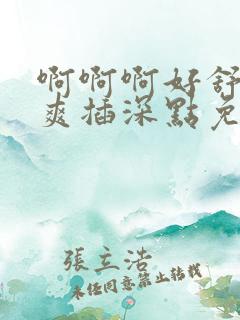 啊啊啊好舒
爽插深點免
張立浩
未任同意禁止转载